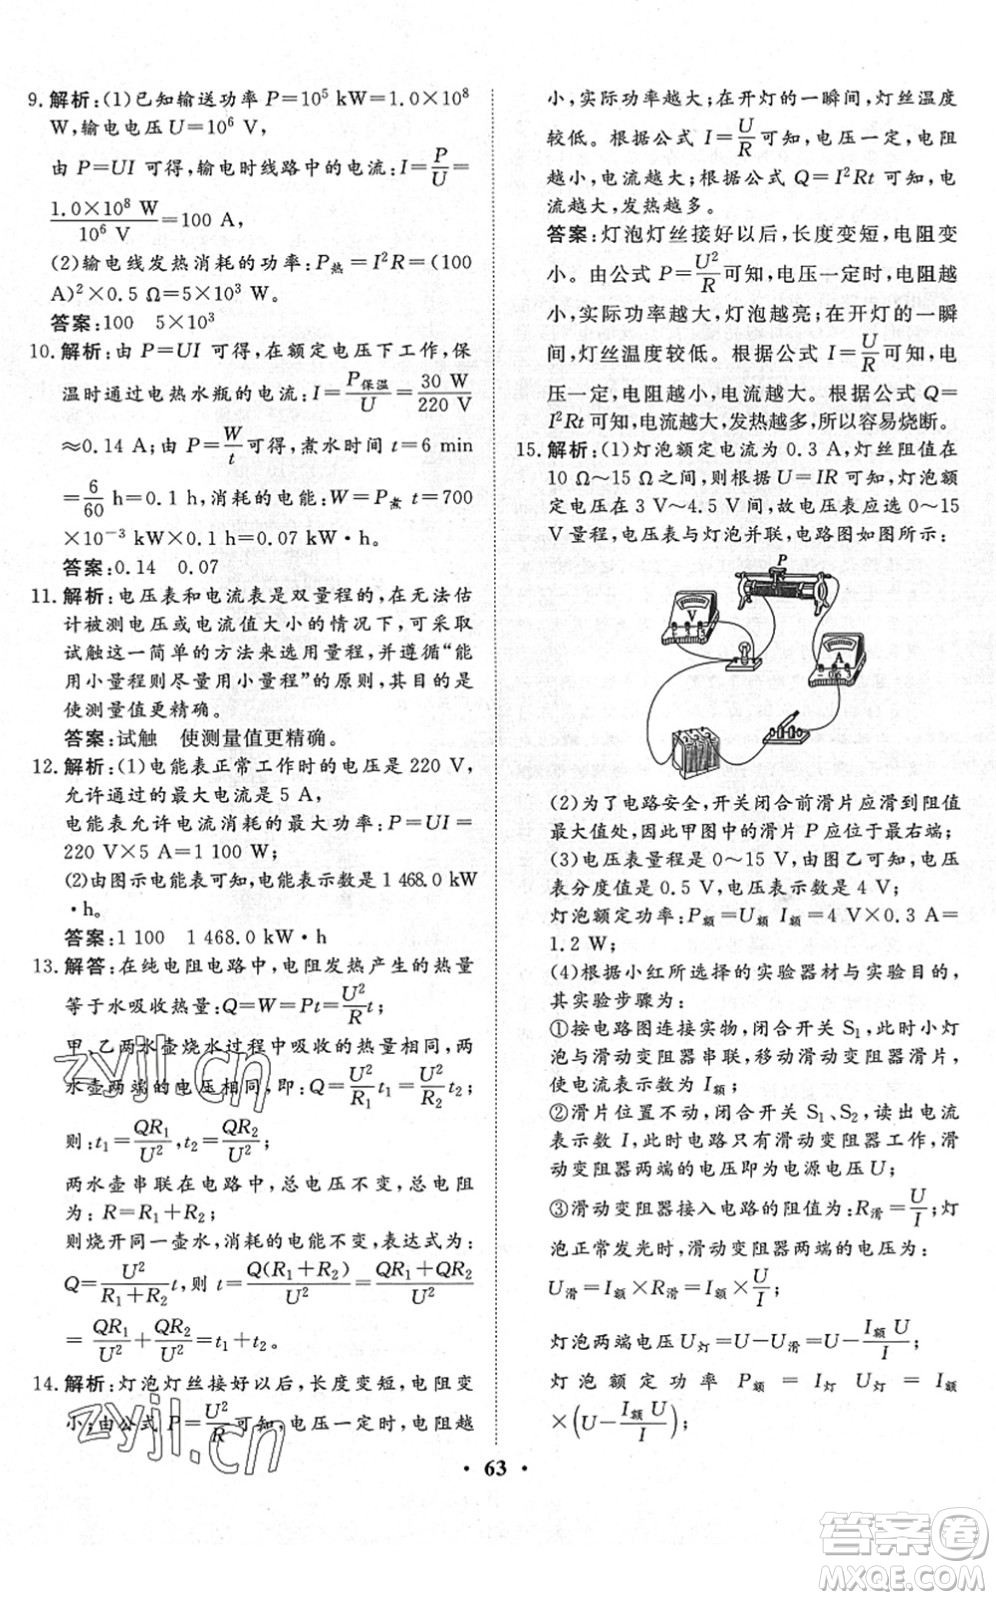 9. 解析:(1)已知输送功率 P=10⁵ kW=1.0×10⁸
W,输电电压 U=10⁶ V,
由 P=UI 可得,输电时线路中的电流:I=P/U=
1.0×10⁸ W/10⁶ V=100 A,
(2)输电线发热消耗的功率:P热=I²R=(100
A)²×0.5 Ω=5×10³ W.
答案:100 5×10³
10. 解析:由 P=UI 可得,在额定电压下工作,保
温时通过电热水瓶的电流:I=P保温/U=30 W/220 V
≈0.14 A;由 P=W/t可得,煮水时间 t=6 min
=6/60 h=0.1 h,消耗的电能:W=P煮 t=700
×10⁻³ kW×0.1 h=0.07 kW·h。
答案:0.14 0.07
11. 解析:电压表和电流表是双量程的,在无法估
计被测电压或电流值大小的情况下,可采取
试触这一简单的方法来选用量程,并遵循“能
用小量程则尽量用小量程”的原则,其目的是
使测量值更精确。
答案:试触 使测量值更精确。
12. 解析:(1)电能表正常工作时的电压是 220 V,
允许通过的最大电流是 5 A,
电能表允许电流消耗的最大功率:P=UI=
220 V×5 A=1 100 W;
(2)由图示电能表可知,电能表示数是 1 468.0 kW
·h。
答案:1 100 1 468.0 kW·h
13. 解答:在纯电阻电路中,电阻发热产生的热量
等于水吸收热量:Q=W=Pt=U²/R t;
甲、乙两水壶烧水过程中吸收的热量相同,两
水壶两端的电压相同,即:Q=U²/R₁ t₁=U²/R₂ t₂;
则:t₁=QR₁/U²,t₂=QR₂/U²;
两水壶串联在电路中,总电压不变,总电阻
为:R=R₁+R₂;
则烧开同一壶水,消耗的电能不变,表达式为:
Q=U²/(R₁+R₂) t,则 t=Q(R₁+R₂)/U²=(QR₁+QR₂)/U²
=QR₁/U²+QR₂/U²=t₁+t₂。
14. 解析:灯泡灯丝接好以后,长度变短,电阻变
小;由公式 P=U²/R可知,电压一定时,电阻越
小,实际功率越大;在开灯的一瞬间,灯丝温度
较低。根据公式 I=U/R可知,电压一定,电阻
越小,电流越大。根据公式 Q=I²Rt 可知,电
流越大,发热越多。
答案:灯泡灯丝接好以后,长度变短,电阻变
小。由公式 P=U²/R可知,电压一定时,电阻越
小,实际功率越大,灯泡越亮;在开灯的一瞬
间,灯丝温度较低。根据公式 I=U/R可知,电
压一定,电阻越小,电流越大。根据公式 Q=
I²Rt 可知,电流越大,发热越多,所以容易烧断。
15. 解析:(1)灯泡额定电流为 0.3 A,灯丝阻值在
10 Ω～15 Ω之间,则根据 U=IR 可知,灯泡额
定电压在 3 V～4.5 V 之间,故电压表应选 0～15
V量程,电压表与灯泡并联,电路图如图所示:
P
V
A
(2)为了电路安全,开关闭合前滑片应滑到阻值
最大值处,因此甲图中的滑片 P 应位于最右端;
(3)电压表量程是 0～15 V,由图乙可知,电压
表分度值是 0.5 V,电压表示数是 4 V;
灯泡额定功率:P额=U额 I额=4 V×0.3 A=
1.2 W;
(4)根据小红所选择的实验器材与实验电路,
其实验步骤为:
①按电路图连接实物,闭合开关 S₁,此时小灯
泡与滑动变阻器串联,移动滑动变阻器滑片,
使电流表示数为 I额;
②滑片位置不动,闭合开关 S₁、S₂,读出电流
表示数 I,此时电路只有滑动变阻器工作,滑
动变阻器两端的电压即为电源电压 U;
③滑动变阻器接入电路的阻值为:R滑=U/I;灯
泡正常发光时,滑动变阻器两端的电压为:
U滑=I额×R滑=I额×U/I;
灯泡两端电压 U灯=U-U滑=U-I额 U/I
灯泡额定功率 P额=I灯 U灯=I额
×(U-I额 U/I);
· 63 ·
zyjl.cn
zyjl.cn
答案圈
MXQE.COM